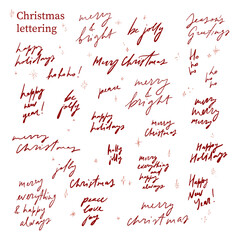 Christmas
lettering
merry
&
bright
be jolly
Season's
Greetings
happy
holidays
hohoho!
Merry Christmas
Ho
ho
ho
peace
merry
&
bright
happy
new
year!
be
jolly
merry
merry
merry
happy
holidays
merry
Christmas
merry
Christmas
holly
jolly
Happy
Holidays
jolly
merry
everything
& happy
always
merry
everything
& happy
always
Christmas
peace
love
joy
Happy
New
Year!
merry
christmas